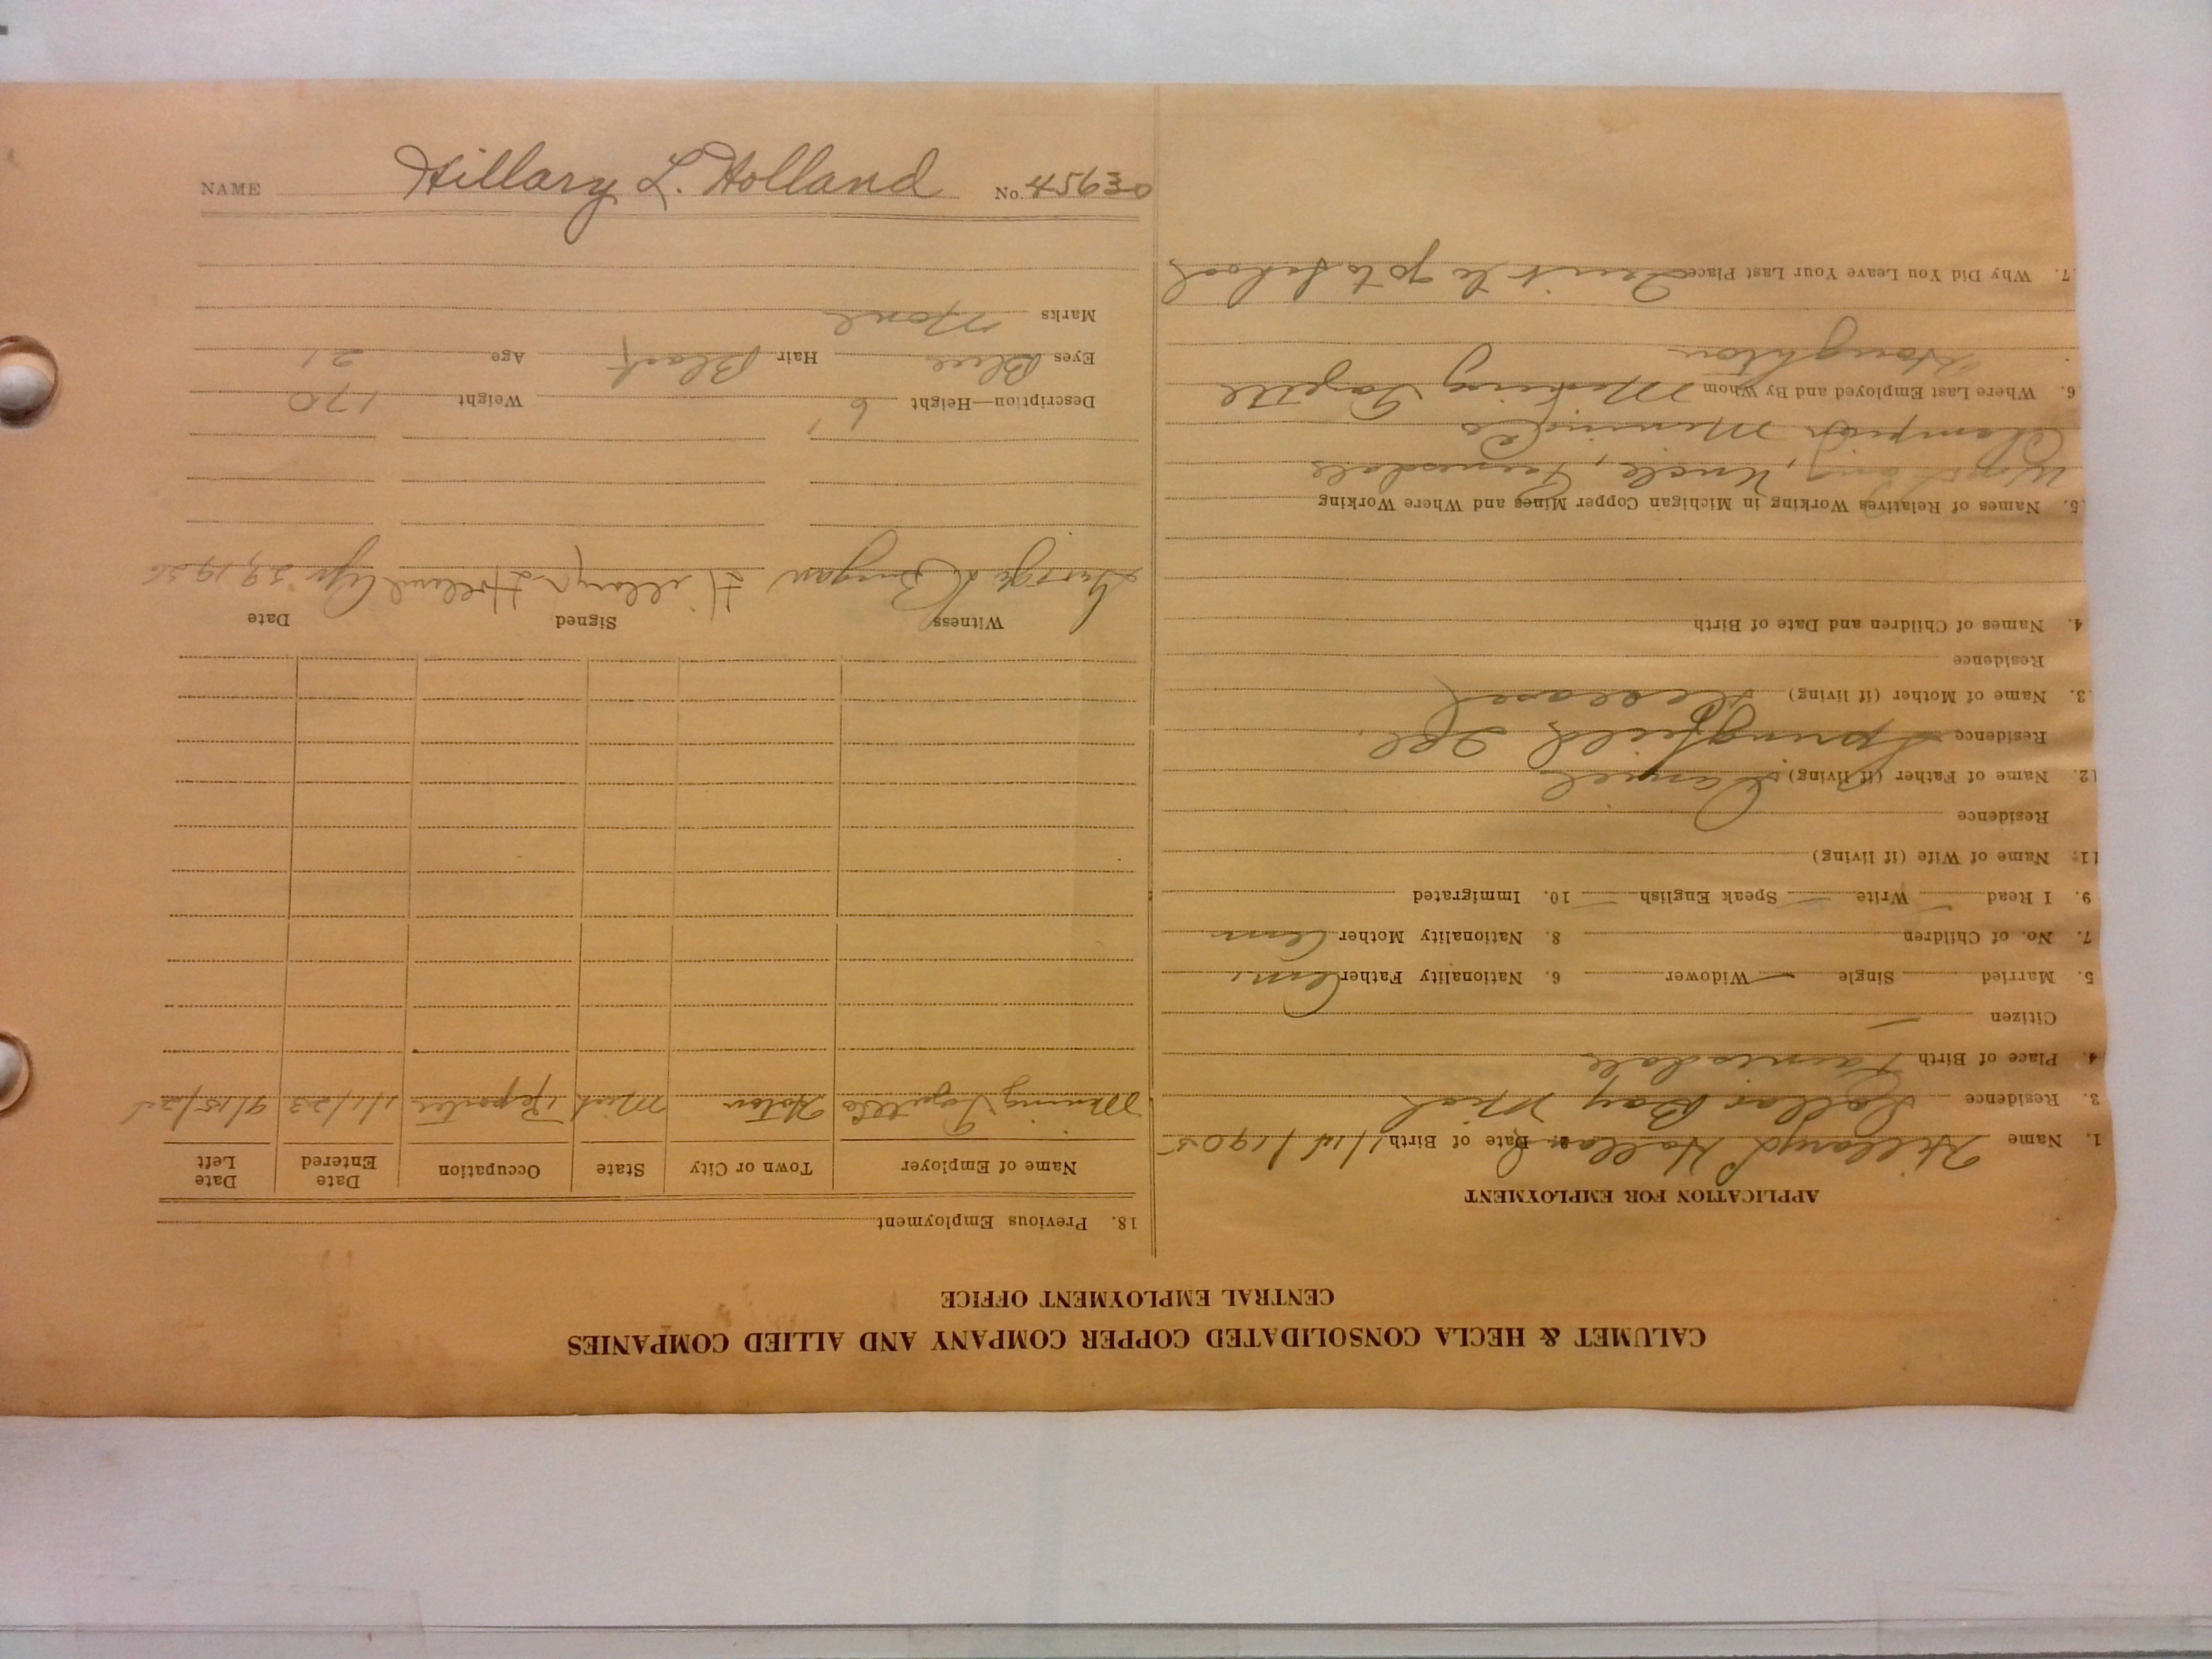 NAME Hillary L. Holland No. 45630
CALUMET & HECLA CONSOLIDATED COPPER COMPANY AND ALLIED COMPANIES
CENTRAL EMPLOYMENT OFFICE
APPLICATION FOR EMPLOYMENT
1. Name Hillary L Holland 2. Date of Birth 1/14/1905
3. Residence Dollar Bay Mich
4. Place of Birth Painesdale
Citizen —
5. Married Single — Widower 6. Nationality Father Am.
7. No. of Children 8. Nationality Mother Am
9. I Read — Write — Speak English — 10. Immigrated
11. Name of Wife (if living)
Residence
12. Name of Father (if living) Daniel
Residence Springfield Ill.
3. Name of Mother (if living) Deceased
Residence
4. Names of Children and Date of Birth
5. Names of Relatives Working in Michigan Copper Mines and Where Working
Uncle, Painesdale
Champion Mining Co
6. Where Last Employed and By Whom Mining Gazette
Houghton
7. Why Did You Leave Your Last Place Quit to go to school
18. Previous Employment
Name of Employer Town or City State Occupation Date Entered Date Left
Mining Gazette Hoton Mich Reporter 1/1/23 9/15/25
Witness Signed Date
George Hillary L Holland Apr 29, 1926
Description—Height 6' Weight 170
Eyes Blue Hair Black Age 21
Marks None